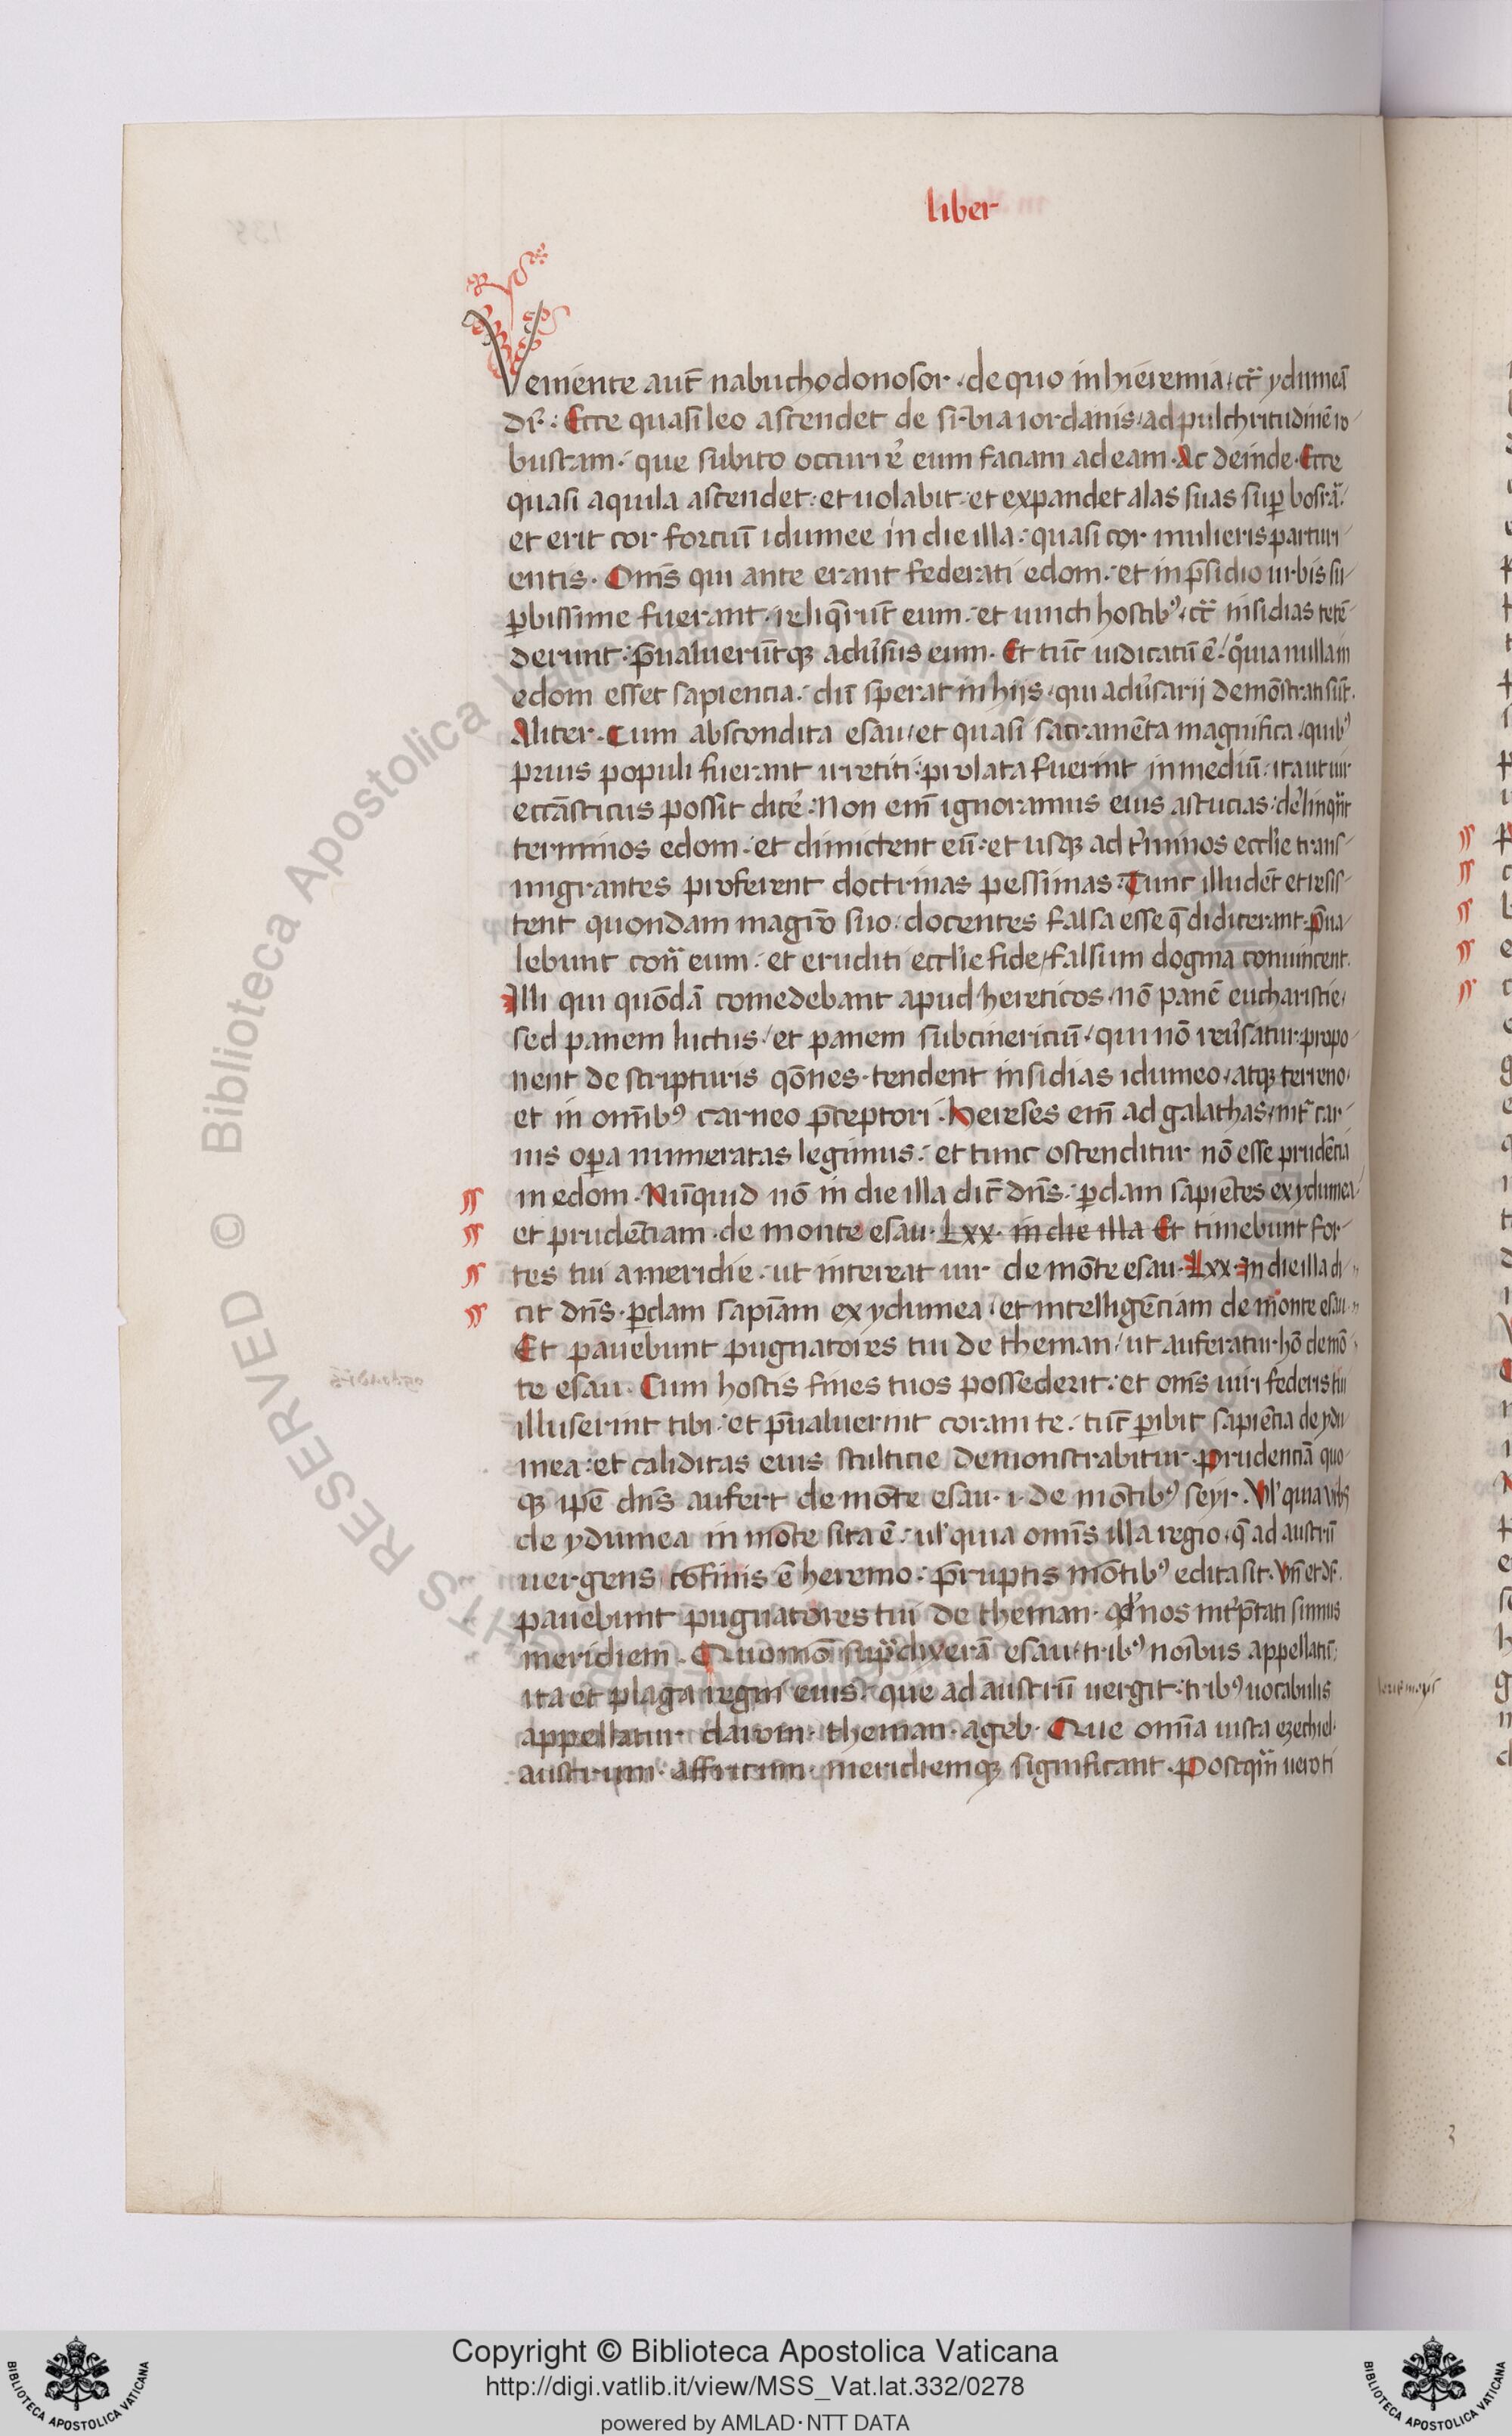 liber
Veniente aut̄ nabuchodonosor · de quo in hieremia · ct̄ ydumeā
dr̄ : Ecce quasi leo ascendet de sirbia iordanis · ad pulchritudinē ro
bustam · que subito occurrē eum faciam ad eam · Ac deinde · Ecce
quasi aquila ascendet : et uolabit · et expandet alas suas sup bosrā
et erit cor forciū idumee in die illa : quasi cor mulieris parturi
entis · Om̄s qui ante erant federati edom : et in p̄sidio urbis su
perbissime fuerant · reliq̄rūt eum : et iuncti hostibꝰ · ct̄ insidias tetē
derunt : p̄ualueruntqꝫ adūsus eum · Et tūc iudicatū ē · quia nulla in
edom esset sapiencia : dū sperat in hijs · qui adūsarij demōstrati sūt ·
Aliter · Cum abscondita esau · et quasi sacramēta magnifica · quibꝰ
prius populi fuerant irretiti : prolata fuerint in mediū · ita ut uir
eccāsticus possit dicē : Non em̄ ignoramus eius astucias : delinqūt
terminos edom : et dimictent eū : et usqꝫ ad tr̄minos ecclīe trans
migrantes proferent doctrinas pessimas : Tunc illudēt et resis
tent quondam magrō suo : docentes falsa esse q̄ didicerant · p̄ua
lebunt con̄ eum : et eruditi ecclīe fide · falsum dogma conuincent ·
Illi qui quōdā comedebant apud hereticos · nō panē eucharistie ·
sed panem luctus · et panem subcinericiū · qui nō reūsatur · propo
nent de scripturis qōnes · tendent insidias idumeo · atqꝫ terreno ·
et in om̄ibꝰ carneo p̄ceptori · Hereses em̄ ad galathas · int̄ car
nis opa numeratas legimus : et tunc ostenditur nō esse prudēcia
in edom · Nūquid nō in die illa dic̄ dn̄s : pdam sapiētes ex ydumea
et prudēciam · de monte esau · Lxx · in die illa Et timebunt for
tes tui a meridie : ut intereat uir de mōte esau · Lxx · In die illa di
cit dn̄s · pdam sapiām ex ydumea · et intelligēciam de monte esau ·
Et pauebunt pugnatores tui de theman · ut auferatur hō de mō
te esau · Cum hostis fines tuos possederit : et om̄s uiri federis tui
illuserint tibi : et p̄ualuerint coram te : tūc pibit sapiēcia de ydu
mea : et caliditas eius stulticie demonstrabitur · Prudenciā quo
qꝫ ipē dn̄s aufert de mōte esau · i · de mōtibꝰ seyr · Vl' quia urbs
de ydumea in mōte sita ē : ul' quia omīs illa regio · q̄ ad austrū
uergens confinis ē heremo : p̄ruptis mōtibꝰ edita sit · Vn̄ et dr̄ ·
pauebunt pugnatores tui de theman · qd' nos int̄p̄tati sumus
meridiem · Quomō sup̄ dixerā esau · tribꝰ noībus appellatū ·
ita et plaga regni eius : que ad austrū uergit : tribꝰ uocabulis
appellatur · darom · theman · ageb · Que omīa iusta ezechiel ·
austrum · affricum · meridiemqꝫ significant · Postq̄m uero ti
© Biblioteca Apostolica Vaticana
RESERVED
Copyright © Biblioteca Apostolica Vaticana
http://digi.vatlib.it/view/MSS_Vat.lat.332/0278
powered by AMLAD·NTT DATA
BIBLIOTECA APOSTOLICA VATICANA
BIBLIOTECA APOSTOLICA VATICANA